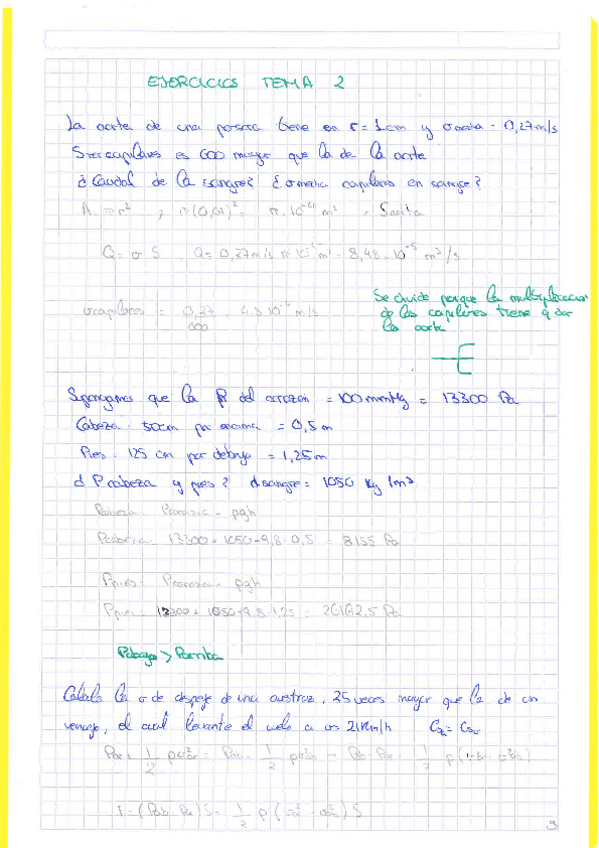 EJERCICIOS TEMA 2
La aorta de una persona tiene en r = 1cm y σ media = 0,27m/s
S capilares es 600 mayor que la de la aorta
¿Caudal de la sangre? ¿σ media capilares en sangre?
A = πr² ; π(0,01)² = π·10⁻⁴ m² = Saorta
Q = σ S Q = 0,27m/s π 10⁻⁴ m² = 8,48·10⁻⁵ m³/s
Se divide porque la multiplicacion
de los capilares tiene q dar
la aorta
σcapilares = 0,27 / 600 4,5 10⁻⁴ m/s
Supongamos que la P del corazón = 100 mmHg = 13300 Pa
Cabeza = 50cm por encima = 0,5 m
Pies = 125 cm por debajo = 1,25 m
¿ P cabeza y pies? dsangre = 1050 Kg/m³
Pcabeza = Pcorazon - ρgh
Pcabeza = 13300 - 1050·9,8·0,5 = 8155 Pa
Ppies = Pcorazon - ρgh
Ppies = 13300 + 1050·9,8·1,25 = 26162,5 Pa
Pabajo > Parriba
Calcula la σ de despeje de una avestruz, 25 veces mayor que la de un
vencejo, el cual levanta el vuelo a 21Km/h
F = (Pab - Par)S = 1/2 ρ
3